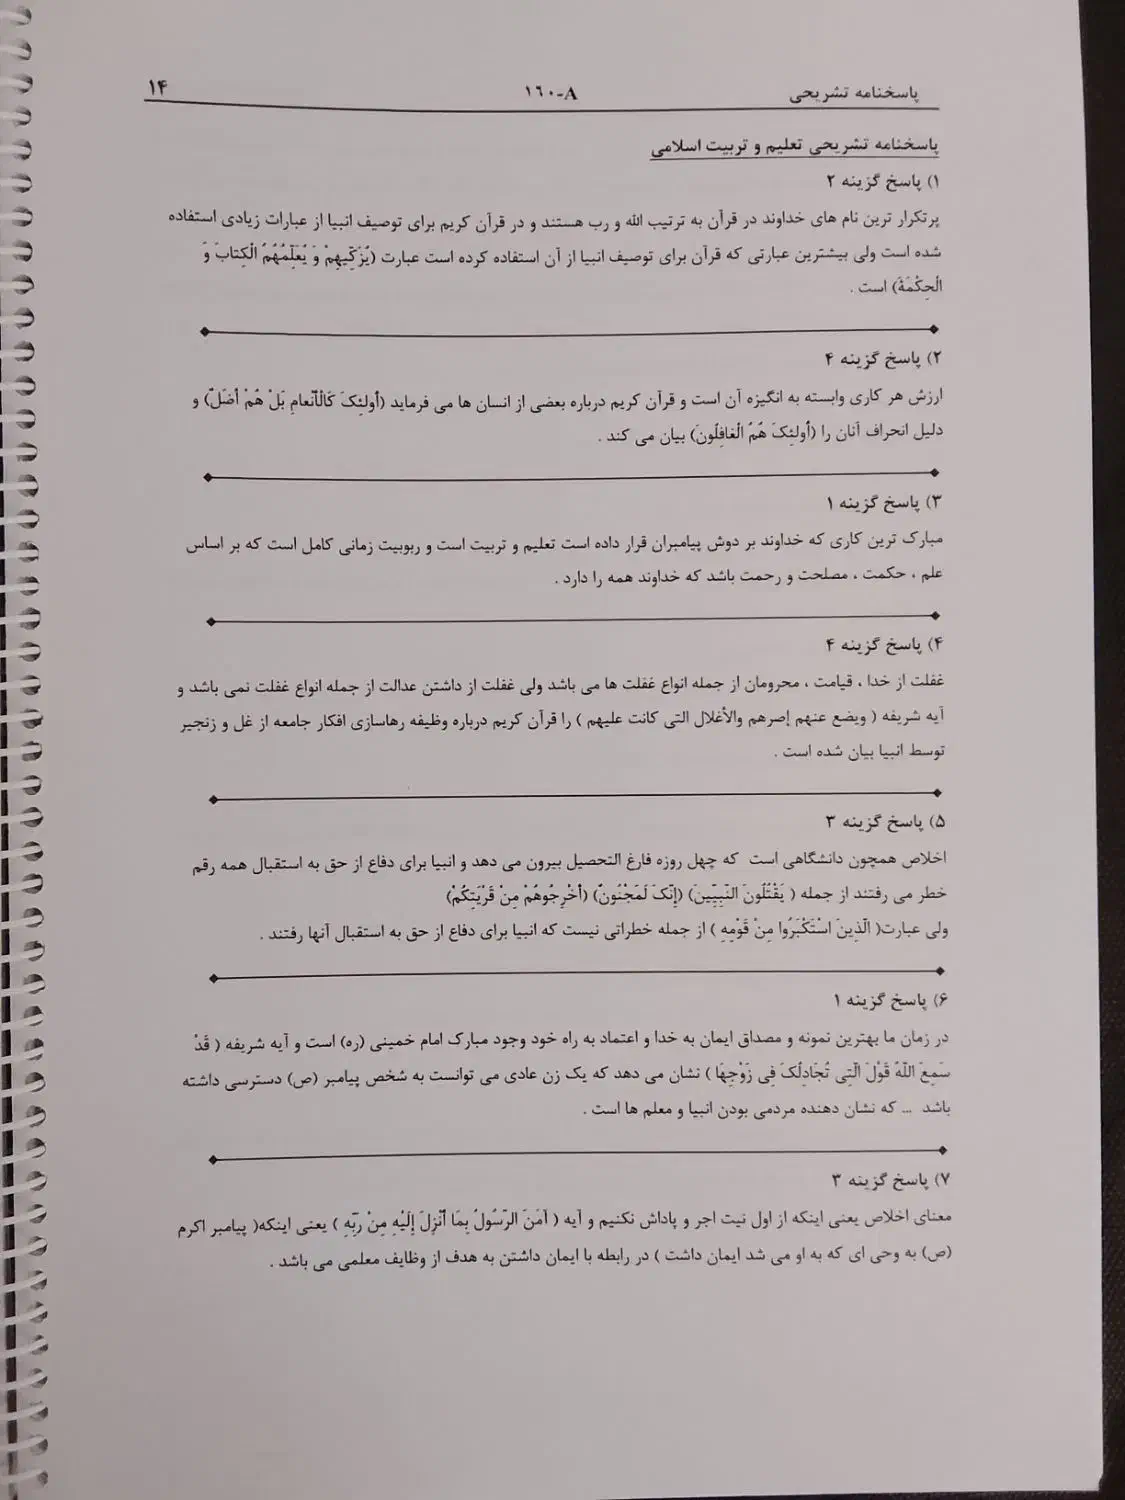 پاسخنامه تشریحی ۱۶۰-A ۱۴
پاسخنامه تشریحی تعلیم و تربیت اسلامی
۱) پاسخ گزینه ۲
پرتکرار ترین نام های خداوند در قرآن به ترتیب الله و رب هستند و در قرآن کریم برای توصیف انبیا از عبارات زیادی استفاده
شده است ولی بیشترین عبارتی که قرآن برای توصیف انبیا از آن استفاده کرده است عبارت (یُزَکِّیهِمْ وَ یُعَلِّمُهُمُ الْکِتابَ وَ
الْحِکْمَةَ) است .
۲) پاسخ گزینه ۴
ارزش هر کاری وابسته به انگیزه آن است و قرآن کریم درباره بعضی از انسان ها می فرماید (أولئِکَ کَالْأنْعامِ بَلْ هُمْ أضَلُّ) و
دلیل انحراف آنان را (أولئِکَ هُمُ الْغافِلُونَ) بیان می کند .
۳) پاسخ گزینه ۱
مبارک ترین کاری که خداوند بر دوش پیامبران قرار داده است تعلیم و تربیت است و ربوبیت زمانی کامل است که بر اساس
علم ، حکمت ، مصلحت و رحمت باشد که خداوند همه را دارد .
۴) پاسخ گزینه ۴
غفلت از خدا ، قیامت ، محرومان از جمله انواع غفلت ها می باشد ولی غفلت از داشتن عدالت از جمله انواع غفلت نمی باشد و
آیه شریفه ( ویضع عنهم إصرهم والأغلال التی کانت علیهم ) را قرآن کریم درباره وظیفه رهاسازی افکار جامعه از غل و زنجیر
توسط انبیا بیان شده است .
۵) پاسخ گزینه ۳
اخلاص همچون دانشگاهی است که چهل روزه فارغ التحصیل بیرون می دهد و انبیا برای دفاع از حق به استقبال همه رقم
خطر می رفتند از جمله ( یَقْتُلُونَ النَّبِیِّینَ) (إِنَّکَ لَمَجْنُونٌ) (أخْرِجُوهُمْ مِنْ قَرْیَتِکُمْ)
ولی عبارت( الَّذِینَ اسْتَکْبَرُوا مِنْ قَوْمِهِ ) از جمله خطراتی نیست که انبیا برای دفاع از حق به استقبال آنها رفتند .
۶) پاسخ گزینه ۱
در زمان ما بهترین نمونه و مصداق ایمان به خدا و اعتماد به راه خود وجود مبارک امام خمینی (ره) است و آیه شریفه ( قَدْ
سَمِعَ اللَّهُ قَوْلَ الَّتِی تُجَادِلُکَ فِی زَوْجِهَا ) نشان می دهد که یک زن عادی می توانست به شخص پیامبر (ص) دسترسی داشته
باشد ... که نشان دهنده مردمی بودن انبیا و معلم ها است .
۷) پاسخ گزینه ۳
معنای اخلاص یعنی اینکه از اول نیت اجر و پاداش نکنیم و آیه ( آمَنَ الرَّسُولُ بِمَا أُنْزِلَ إِلَیْهِ مِنْ رَبِّهِ ) یعنی اینکه( پیامبر اکرم
(ص) به وحی ای که به او می شد ایمان داشت ) در رابطه با ایمان داشتن به هدف از وظایف معلمی می باشد .